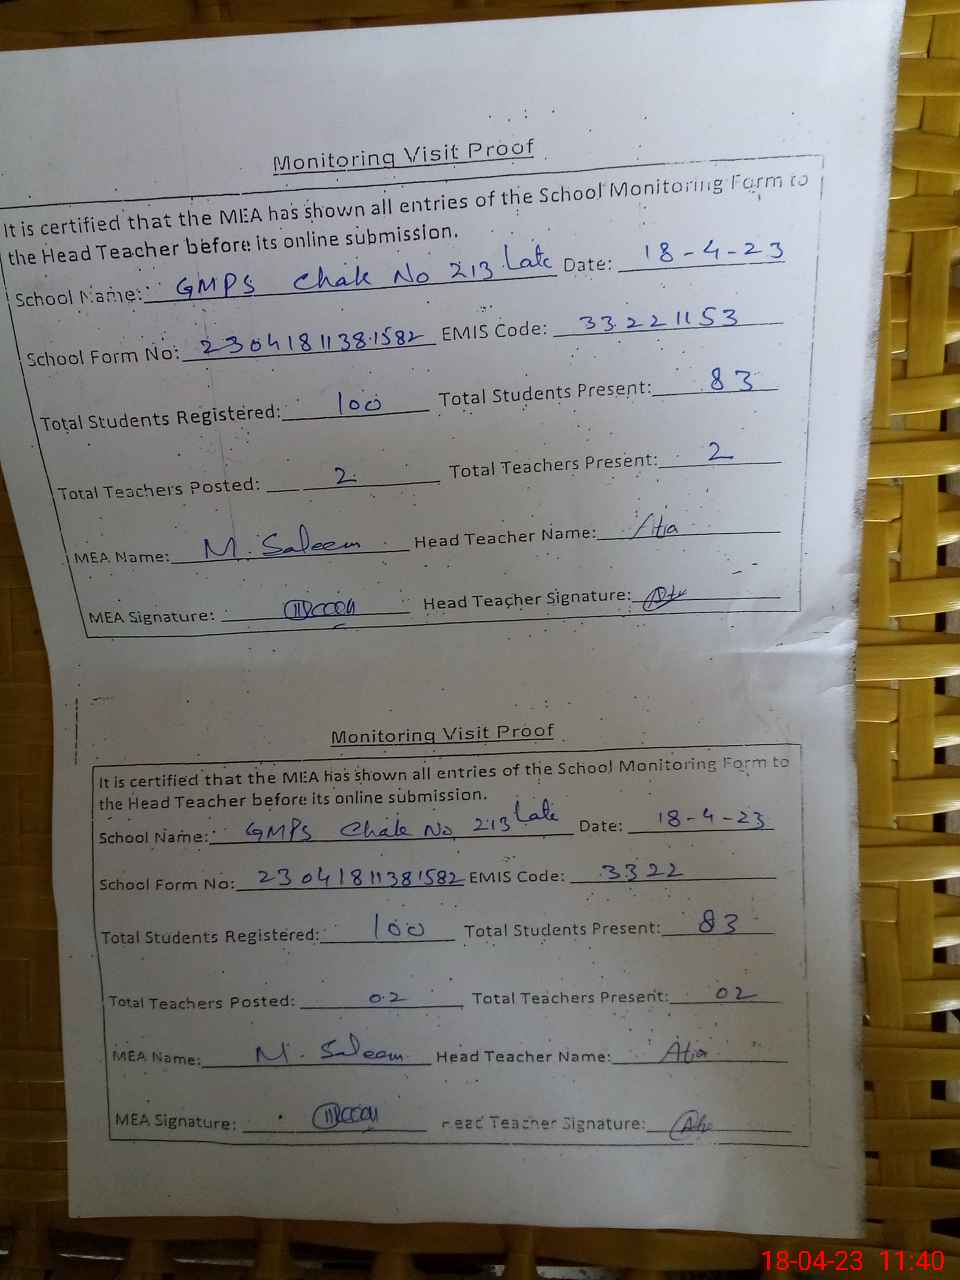 Monitoring Visit Proof
It is certified that the MEA has shown all entries of the School Monitoring Form to
the Head Teacher before its online submission.
School Name: GMPS Chak No 213 Date: 18-4-23
School Form No: 23041811381582 EMIS Code: 33221153
Total Students Registered: 100 Total Students Present: 83
Total Teachers Posted: 2 Total Teachers Present: 2
MEA Name: M. Saleem Head Teacher Name: Atia
MEA Signature: Head Teacher Signature:
Monitoring Visit Proof
It is certified that the MEA has shown all entries of the School Monitoring Form to
the Head Teacher before its online submission.
School Name: GMPS Chak No 213 Date: 18-4-23
School Form No: 23041811381582 EMIS Code: 3322
Total Students Registered: 100 Total Students Present: 83
Total Teachers Posted: 02 Total Teachers Present: 02
MEA Name: M. Saleem Head Teacher Name: Atia
MEA Signature: Head Teacher Signature:
18-04-23 11:40